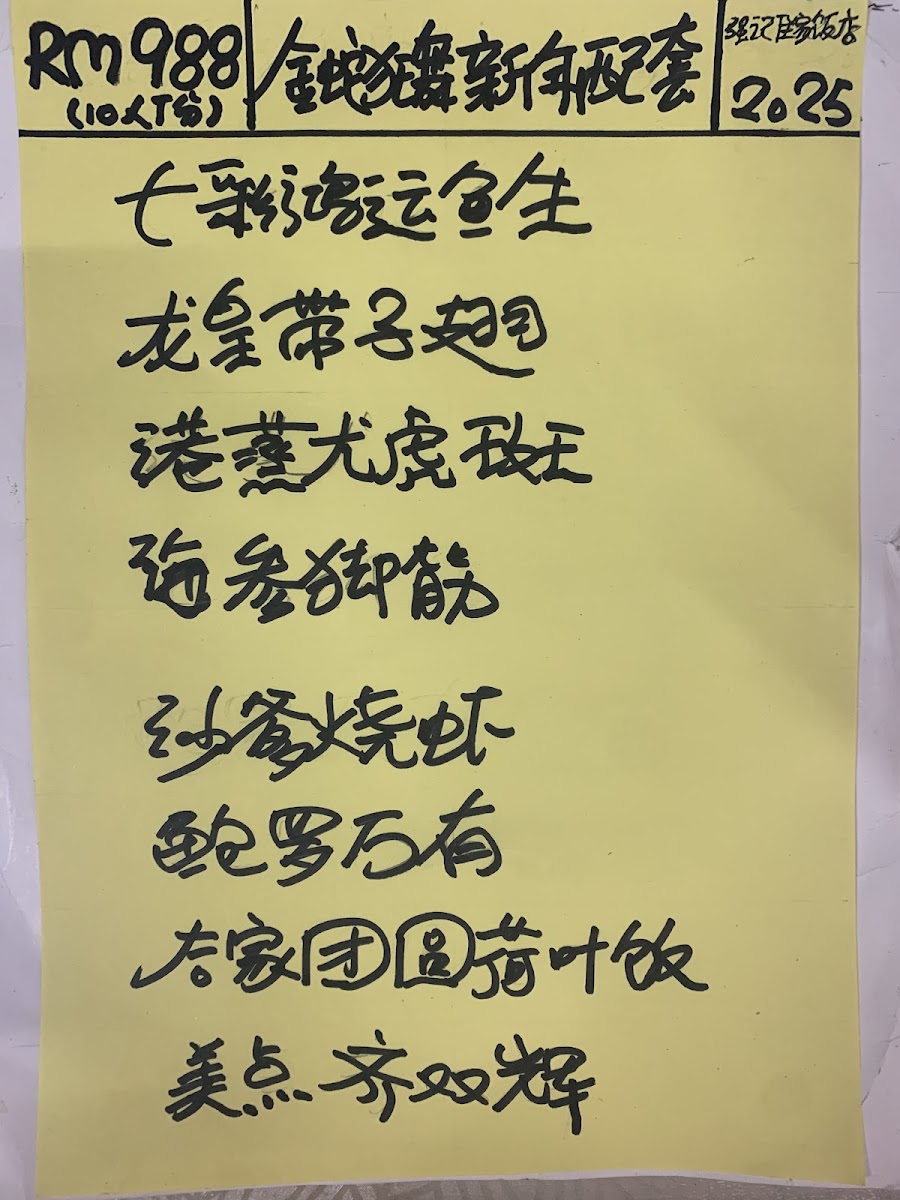 RM988
(10人份)
金蛇狂舞新年配套
强记住家饭店
2025
七彩鸿运鱼生
龙皇带子翅
港蒸龙虎斑
海参脚筋
沙爹烧虾
鲍罗万有
合家团圆荷叶饭
美点齐双辉